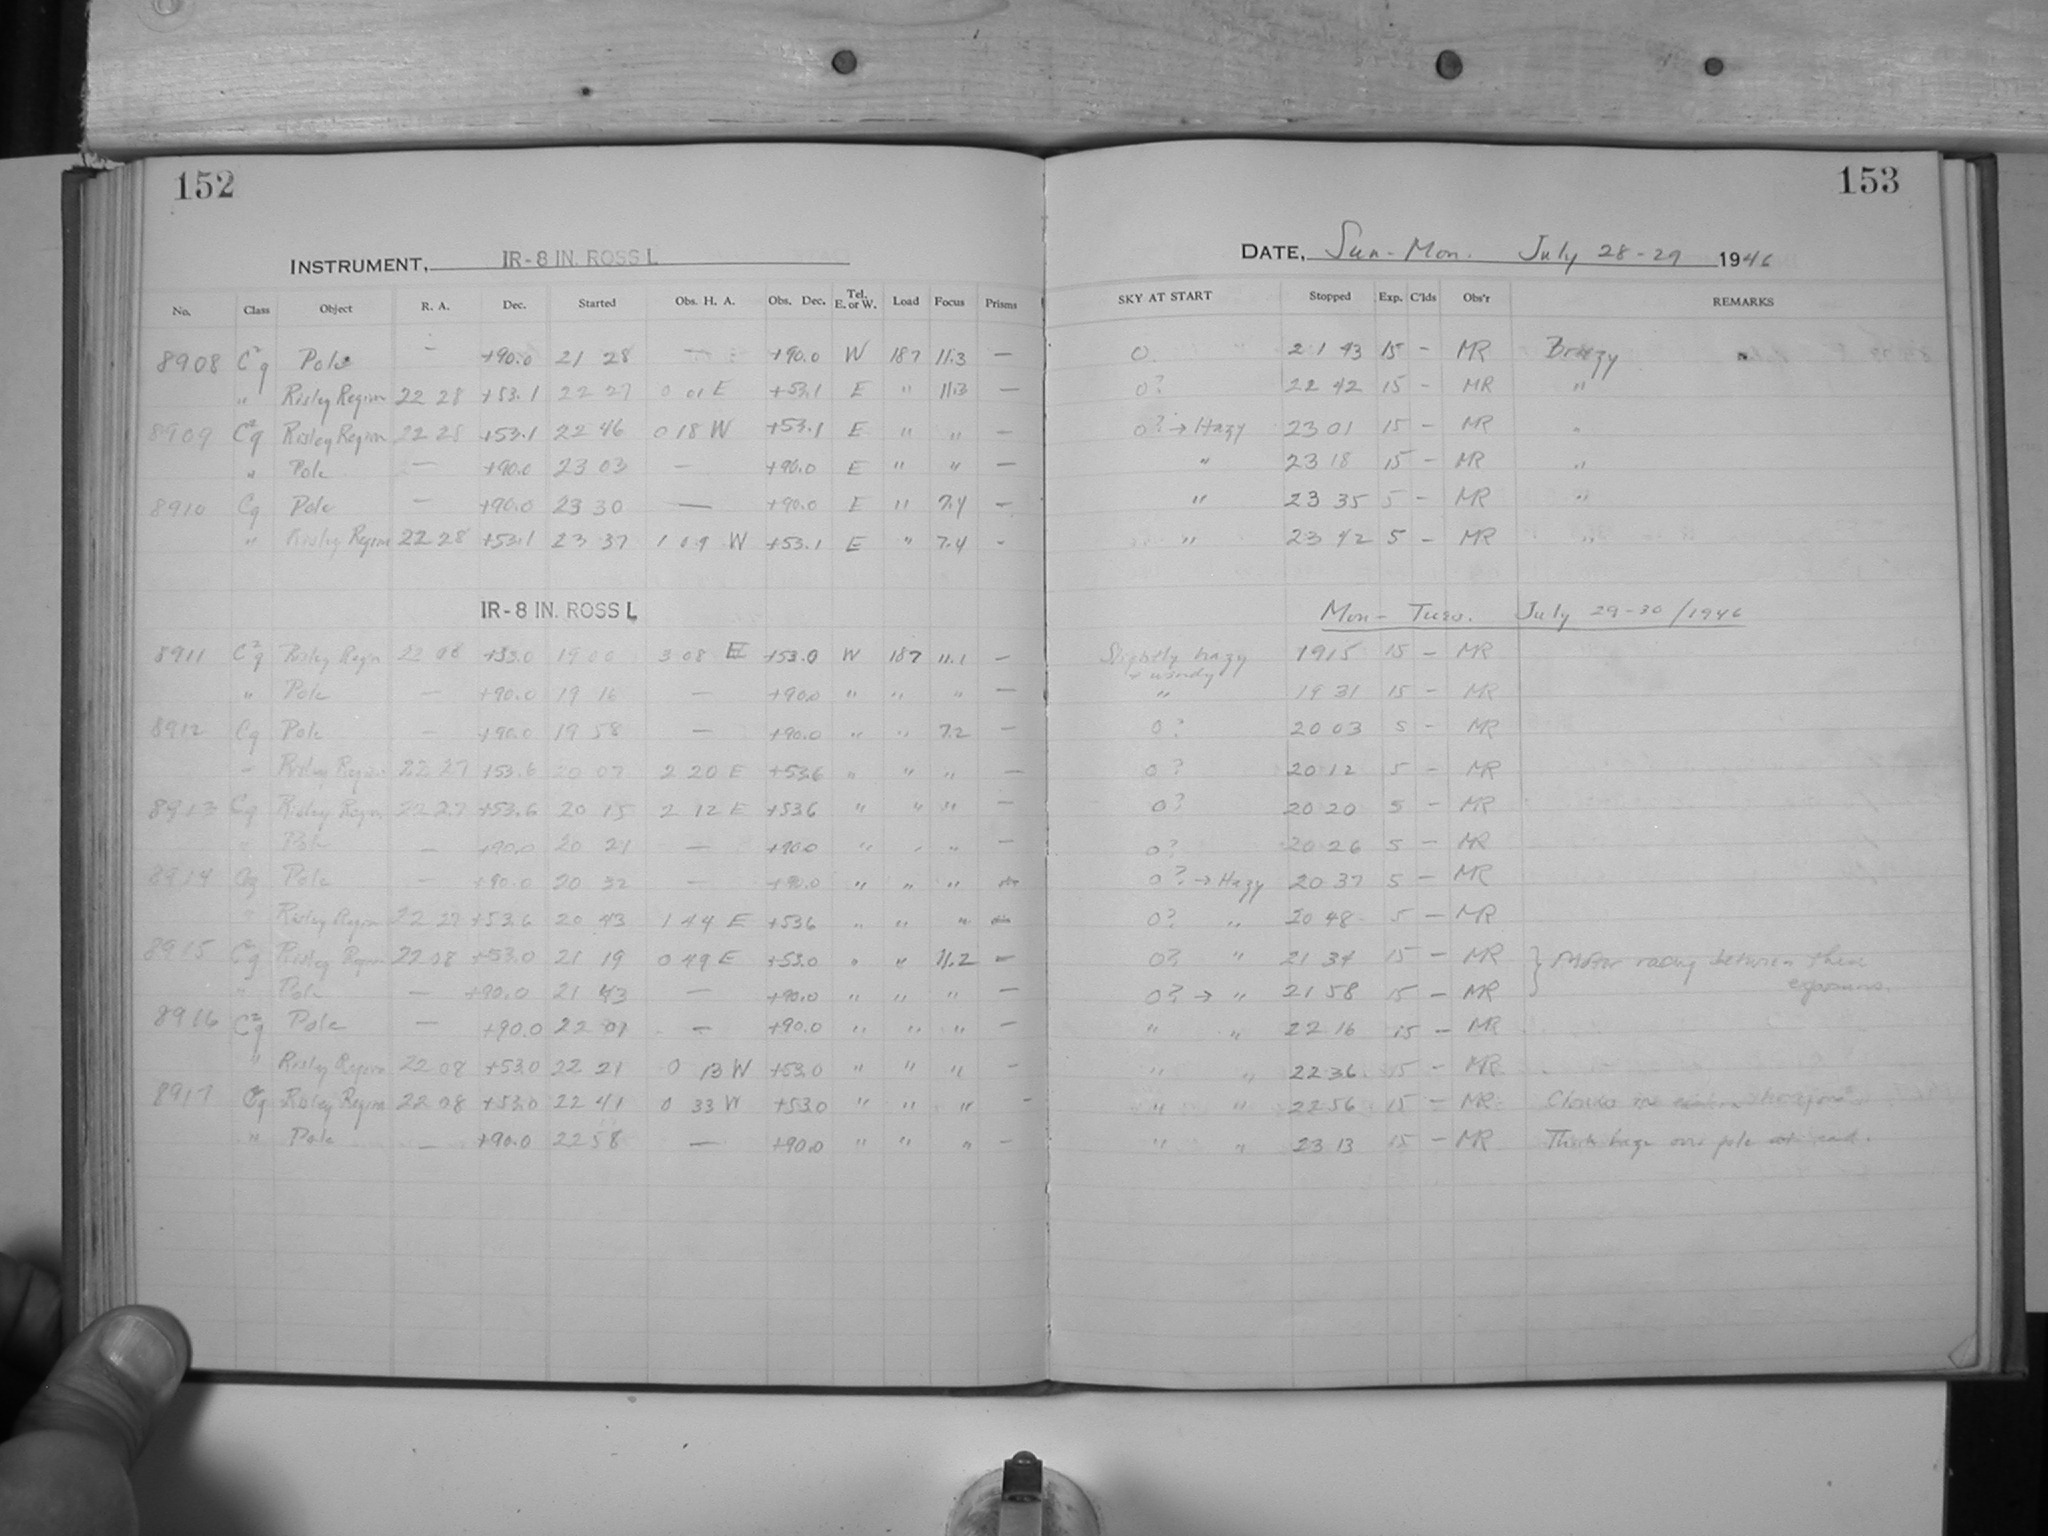 152
153
INSTRUMENT, IR-8 IN. ROSS L
DATE, Sun-Mon. July 28-29 1946
No. Class Object R. A. Dec. Started Obs. H. A. Obs. Dec. Tel. E. or W. Load Focus Prisms SKY AT START Stopped Exp. C'lds Obs'r REMARKS
8908 C²q Pole — +90.0 21 28 — +90.0 W 187 11.3 — 0. 21 43 15 — MR Breezy
" Risley Region 22 28 +53.1 22 27 0 01 E +53.1 E " 11.3 — 0? 22 42 15 — MR "
8909 C²q Risley Region 22 28 +53.1 22 46 0 18 W +53.1 E " " — 0? → Hazy 23 01 15 — MR "
" Pole — +90.0 23 03 — +90.0 E " " — " 23 18 15 — MR "
8910 Cq Pole — +90.0 23 30 — +90.0 E " 7.4 — " 23 35 5 — MR "
" Risley Region 22 28 +53.1 23 37 1 09 W +53.1 E " 7.4 - " 23 42 5 — MR "
IR-8 IN. ROSS L
Mon- Tues. July 29-30/1946
8911 C²q Risley Regn 22 08 +53.0 19 00 3 08 E +53.0 W 187 11.1 — Slightly hazy + windy 19 15 15 — MR
" Pole — +90.0 19 16 — +90.0 " " " — " 19 31 15 — MR
8912 Cq Pole — +90.0 19 58 — +90.0 " " 7.2 — 0? 20 03 5 — MR
" Risley Region 22 27 +53.6 20 07 2 20 E +53.6 " " " — 0? 20 12 5 — MR
8913 Cq Risley Regn 22 27 +53.6 20 15 2 12 E +53.6 " " " — 0? 20 20 5 — MR
" Pole — +90.0 20 21 — +90.0 " " " — 0? 20 26 5 — MR
8914 Cq Pole — +90.0 20 32 — +90.0 " " " — 0? → Hazy 20 37 5 — MR
" Risley Region 22 27 +53.6 20 43 1 44 E +53.6 " " " — 0? " 20 48 5 — MR
8915 C²q Risley Region 22 08 +53.0 21 19 0 49 E +53.0 " " 11.2 — 0? " 21 34 15 — MR } Motor racing between these
" Pole — +90.0 21 43 — +90.0 " " " — 0? → " 21 58 15 — MR exposures.
8916 C²q Pole — +90.0 22 01 — +90.0 " " " — " " 22 16 15 — MR
" Risley Region 22 08 +53.0 22 21 0 13 W +53.0 " " " — " " 22 36 15 — MR
8917 C²q Risley Region 22 08 +53.0 22 41 0 33 W +53.0 " " " - " " 22 56 15 — MR Clouds in horizon
" Pole — +90.0 22 58 — +90.0 " " " — " " 23 13 15 — MR Thick haze over pole at end.